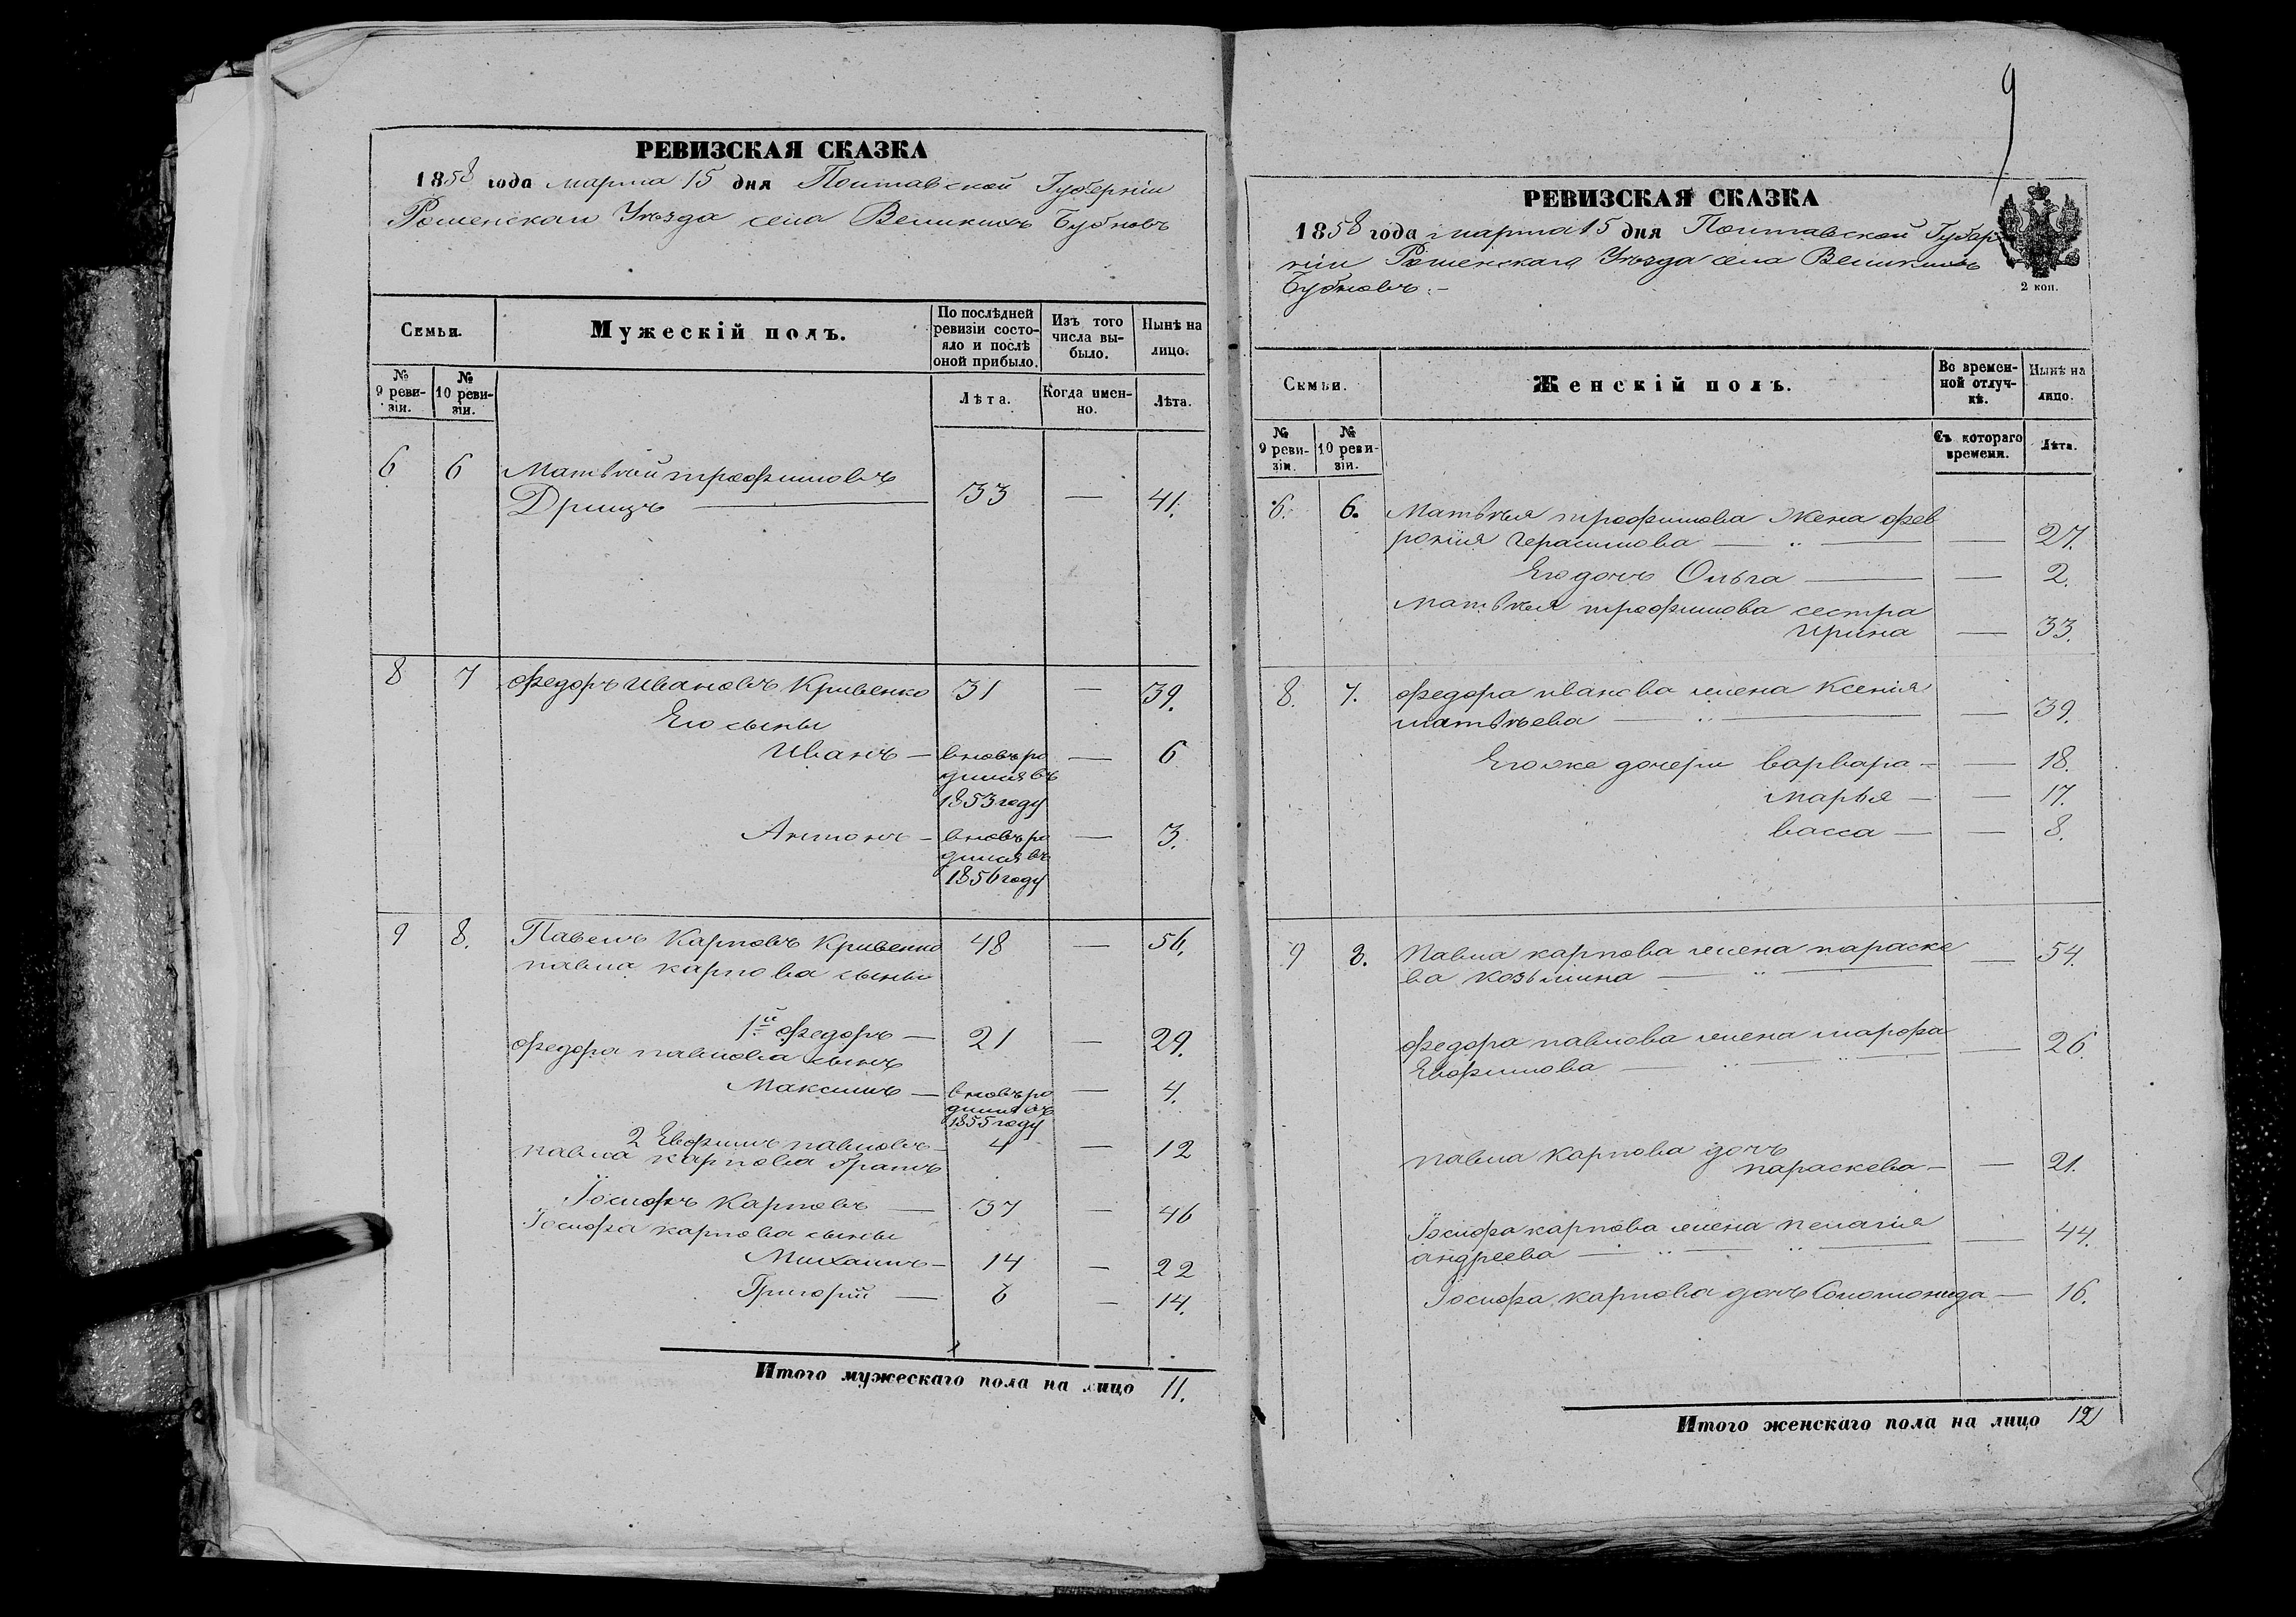 РЕВИЗСКАЯ СКАЗКА
1858 года марта 15 дня Полтавской Губерніи
Роменскаго Уѣзда села Великихъ Бубновъ
Семьи.
Мужескій полъ.
По послѣдней ревизіи состояло и послѣ оной прибыло.
Изъ того числа выбыло.
Нынѣ на лицо.
№ 9 ревизіи.
№ 10 ревизіи.
Лѣта.
Когда именно.
Лѣта.
6 6 Матвѣй трофимовъ
Дрищъ — 33 — 41.
8 7 Федоръ Ивановъ Кривенко 31 — 39.
Его сыны
Иванъ — вновь ро — 6
дился въ
1853 году
Антонъ — вновь ро — 3.
дился въ
1856 году
9 8. Павелъ Карповъ Кривенко 48 — 56.
павла карпова сыны
1й Федоръ — 21 — 29.
федора павлова сынъ
Максимъ — вновь ро — 4.
дился въ
1855 году
2 Евфимъ павловъ — 4 — 12
павла карпова братъ
Іосифъ Карповъ — 37 — 46
Іосифа карпова сыны
Михаилъ — 14 — 22
Григорій — 6 — 14.
Итого мужескаго пола на лицо 11.
9
РЕВИЗСКАЯ СКАЗКА
1858 года марта 15 дня Полтавской Губер
ніи Роменскаго Уѣзда села Великихъ
Бубновъ. –
2 коп.
Семьи.
Женскій полъ.
Во временной отлучкѣ.
Нынѣ на лицо.
№ 9 ревизіи.
№ 10 ревизіи.
Съ котораго времени.
Лѣта.
6. 6. Матвѣя трофимова Жена фев
ронія Герасимова — 27.
Его дочь Ольга — — 2.
Матвѣя трофимова сестра
Ирина — 33.
8. 7. федора иванова жена Ксенія
матвѣева — — 39.
Его же дочери варвара — — 18.
марья — — 17.
васса — — 8.
9 8. Павла карпова жена параске
ва козьмина — — 54.
федора павлова жена марфа
Евфимова — — 26.
павла Карпова дочь
параскева — — 21.
Іосифа карпова жена пелагія
андреева — — 44.
Іосифа карпова дочь Соломонида — 16.
Итого женскаго пола на лицо 12